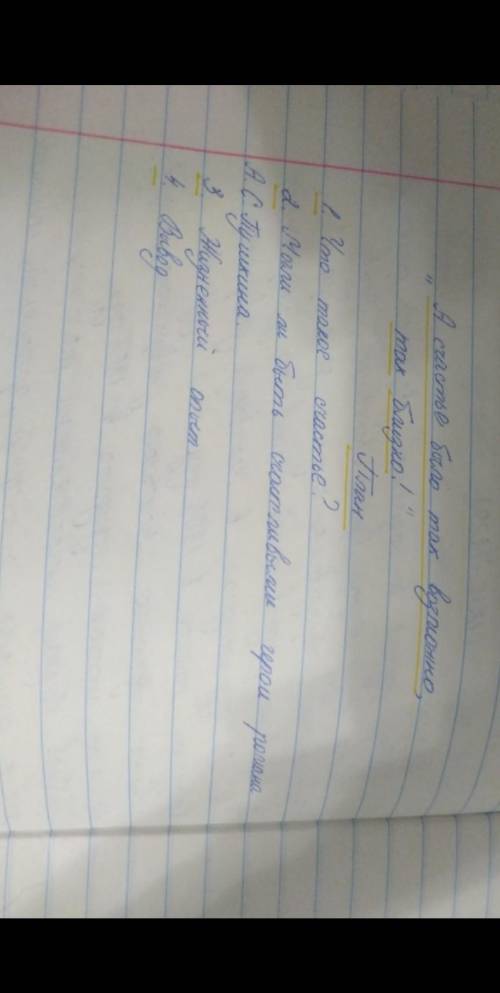 „А счастье было так возможно,
так близко!"
План
1. Что такое счастье?
2. Могли ли быть счастливыми герои романа
А.С.Пушкина
3. Жизненный опыт
4. Вывод